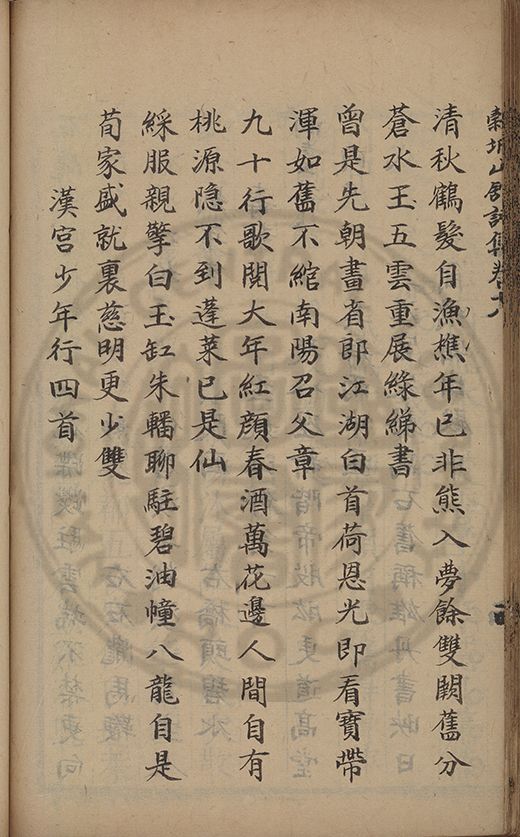 清秋鶴髮自漁樵年已非熊入夢餘雙闕舊分
蒼水玉五雲重展綠綈書
曾是先朝畫省郎江湖白首荷恩光即看寶帶
渾如舊不綰南陽召父章
九十行歌閱大年紅顏春酒萬花邊人間自有
桃源隐不到蓬萊已是仙
綵服親擎白玉缸朱轓聊駐碧油幢八龍自是
荀家盛就裏慈明更少雙
漢宮少年行四首